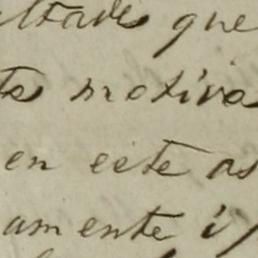 ltades que
ta motiva
en este as
amente i